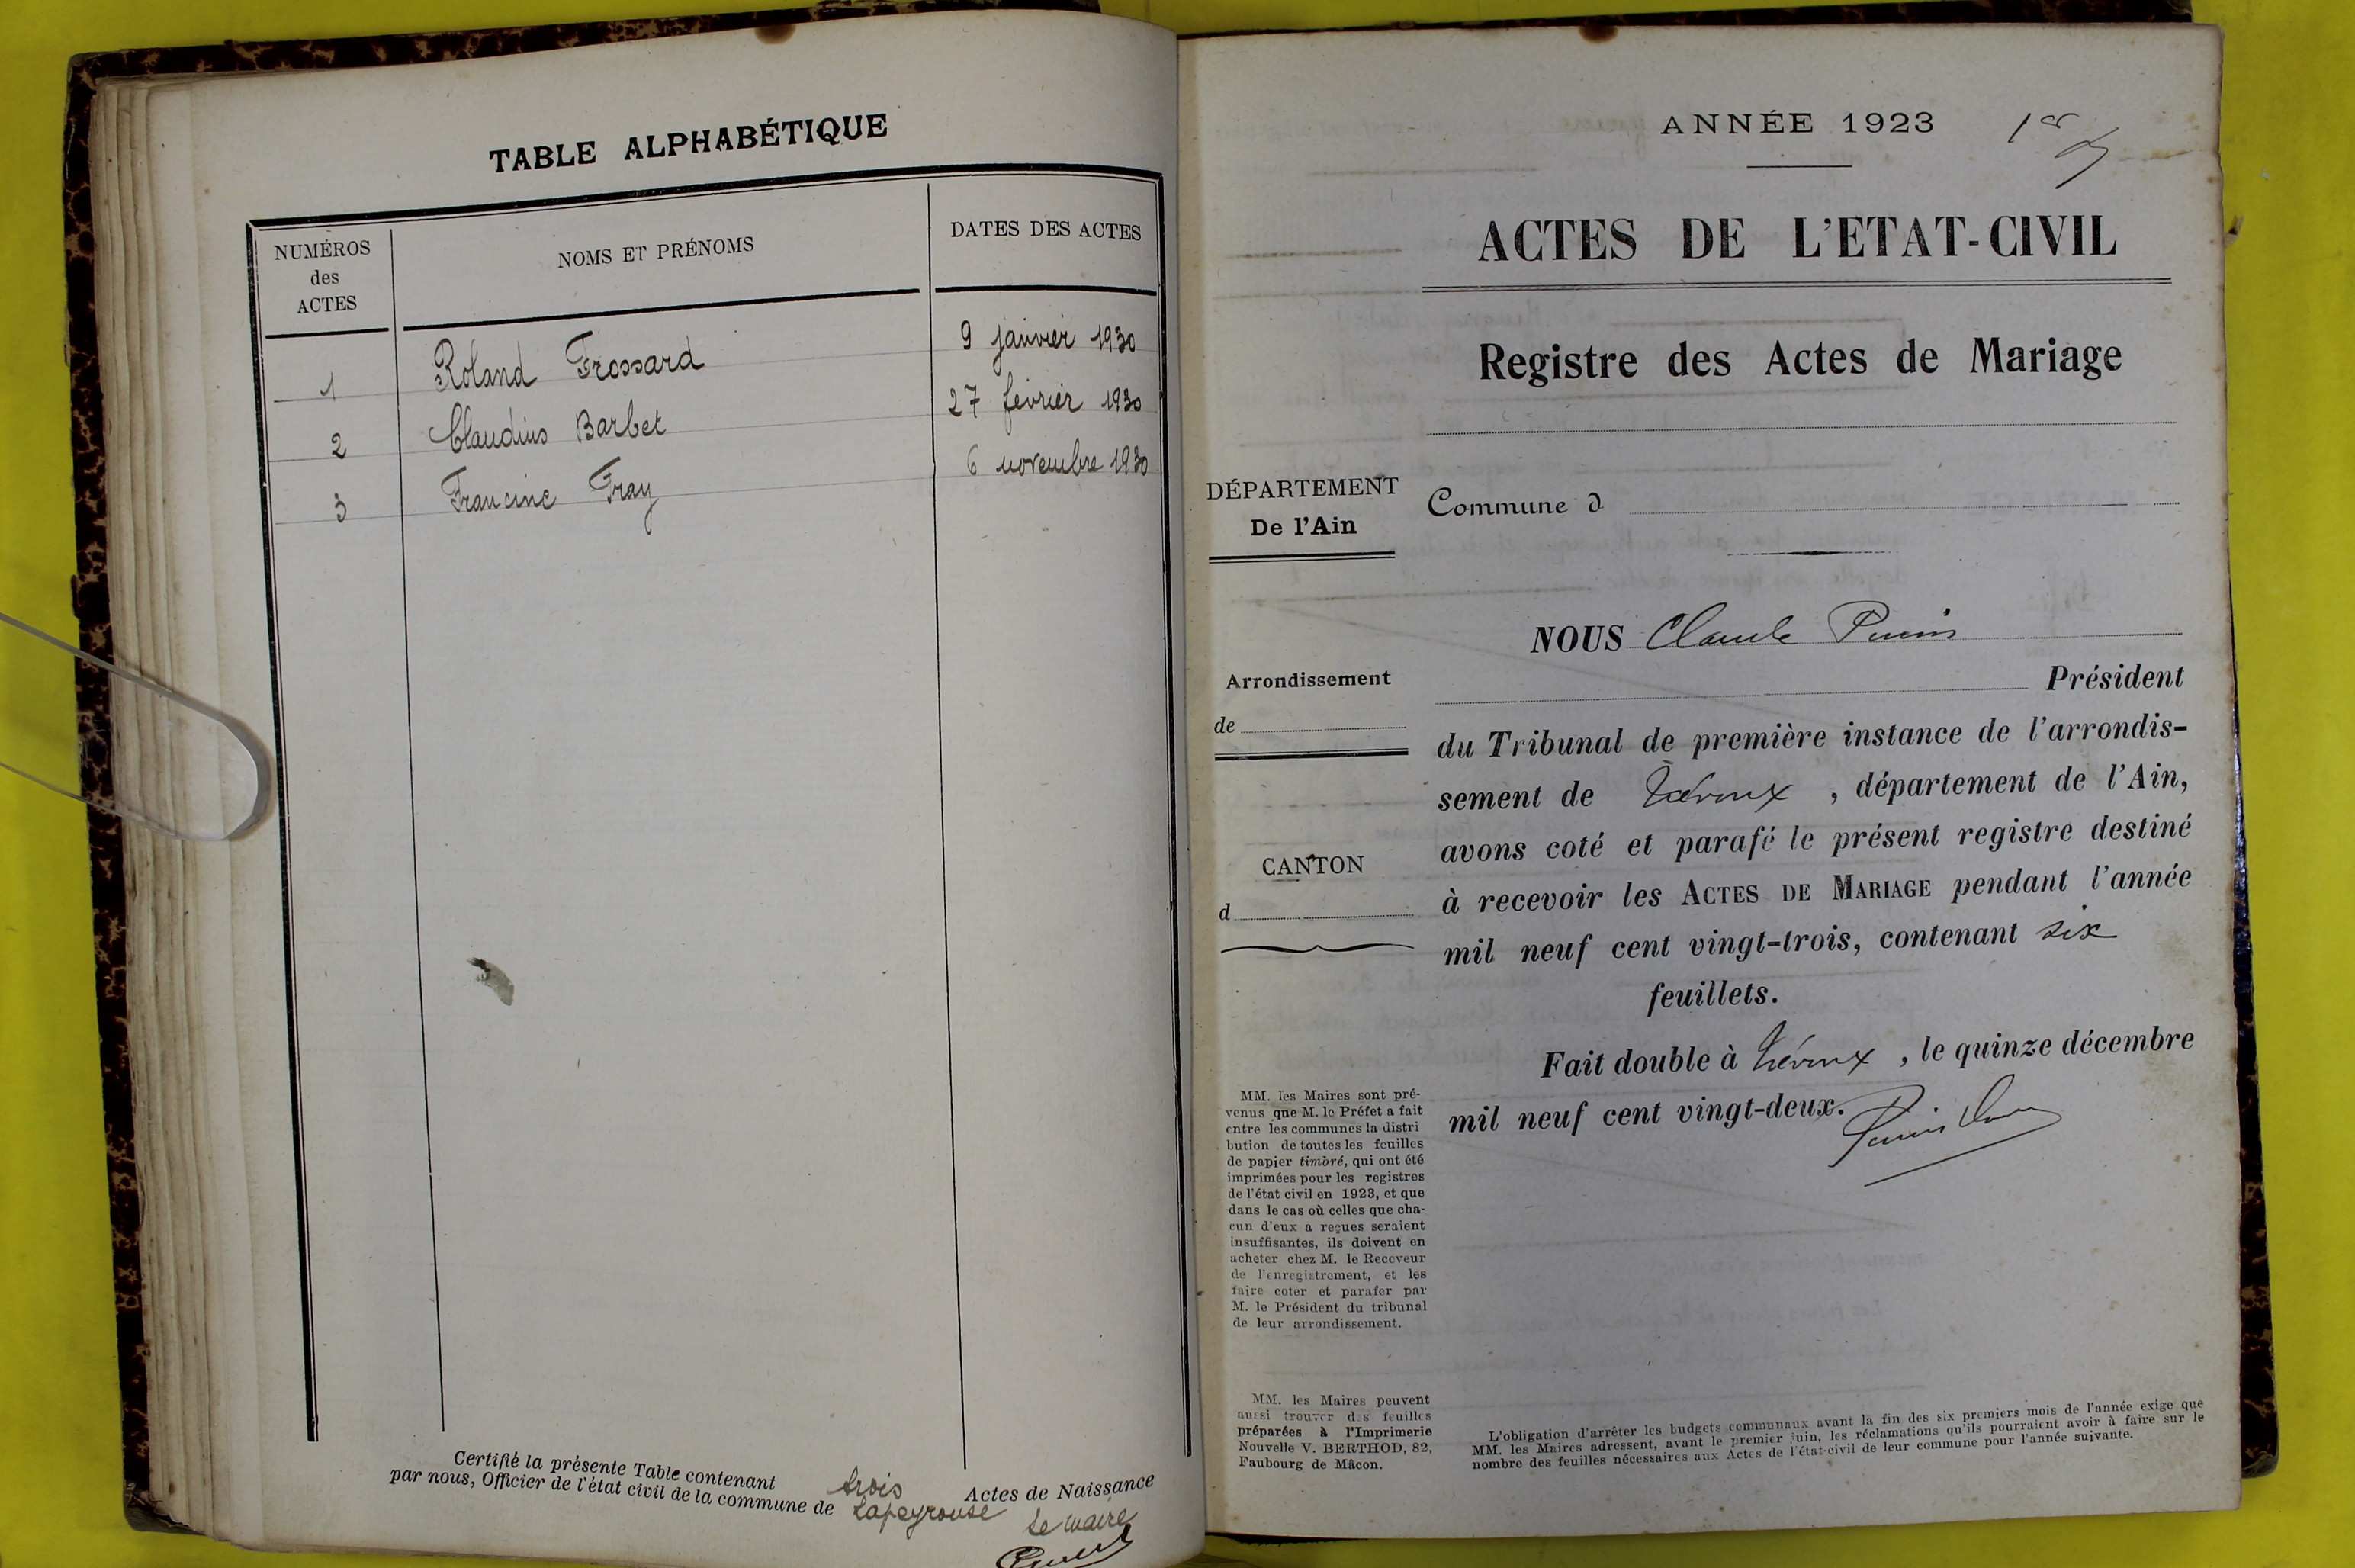 TABLE ALPHABÉTIQUE
NUMÉROS
des
ACTES
NOMS ET PRÉNOMS
DATES DES ACTES
1 Roland Frossard 9 janvier 1930
2 Claudius Barbet 27 février 1930
3 Francine Fray 6 novembre 1930
Certifié la présente Table contenant trois Actes de Naissance
par nous, Officier de l'état civil de la commune de Lapeyrouse
Le maire
ANNÉE 1923
1er
ACTES DE L'ETAT-CIVIL
Registre des Actes de Mariage
DÉPARTEMENT
De l'Ain
Commune d
Arrondissement
de
CANTON
d
NOUS Claude
Président
du Tribunal de première instance de l'arrondis-
sement de Trévoux, département de l'Ain,
avons coté et parafé le présent registre destiné
à recevoir les ACTES DE MARIAGE pendant l'année
mil neuf cent vingt-trois, contenant six
feuillets.
Fait double à Trévoux, le quinze décembre
mil neuf cent vingt-deux.
MM. les Maires sont pré-
venus que M. le Préfet a fait
entre les communes la distri
bution de toutes les feuilles
de papier timbré, qui ont été
imprimées pour les registres
de l'état civil en 1923, et que
dans le cas où celles que cha-
cun d'eux a reçues seraient
insuffisantes, ils doivent en
acheter chez M. le Receveur
de l'enregistrement, et les
faire coter et parafer par
M. le Président du tribunal
de leur arrondissement.
MM. les Maires peuvent
aussi trouver des feuilles
préparées à l'Imprimerie
Nouvelle V. BERTHOD, 82,
Faubourg de Mâcon.
L'obligation d'arrêter les budgets communaux avant la fin des six premiers mois de l'année exige que
MM. les Maires adressent, avant le premier juin, les réclamations qu'ils pourraient avoir à faire sur le
nombre des feuilles nécessaires aux Actes de l'état-civil de leur commune pour l'année suivante.